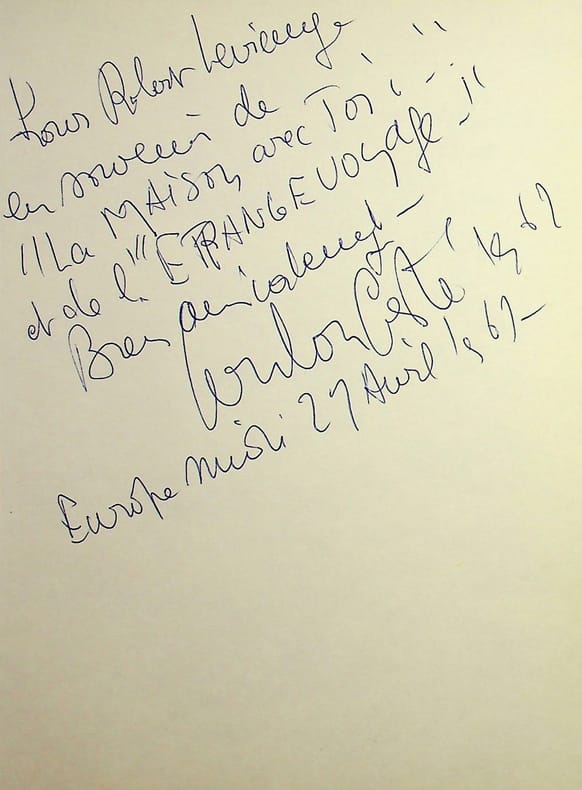 Pour Robert
en souvenir de
"La MAISON avec TOi" - "
et de l' "ETRANGE VOYAGE - "
Bien amicalement -
1962
Europe Midi 27 Avril 1967 -